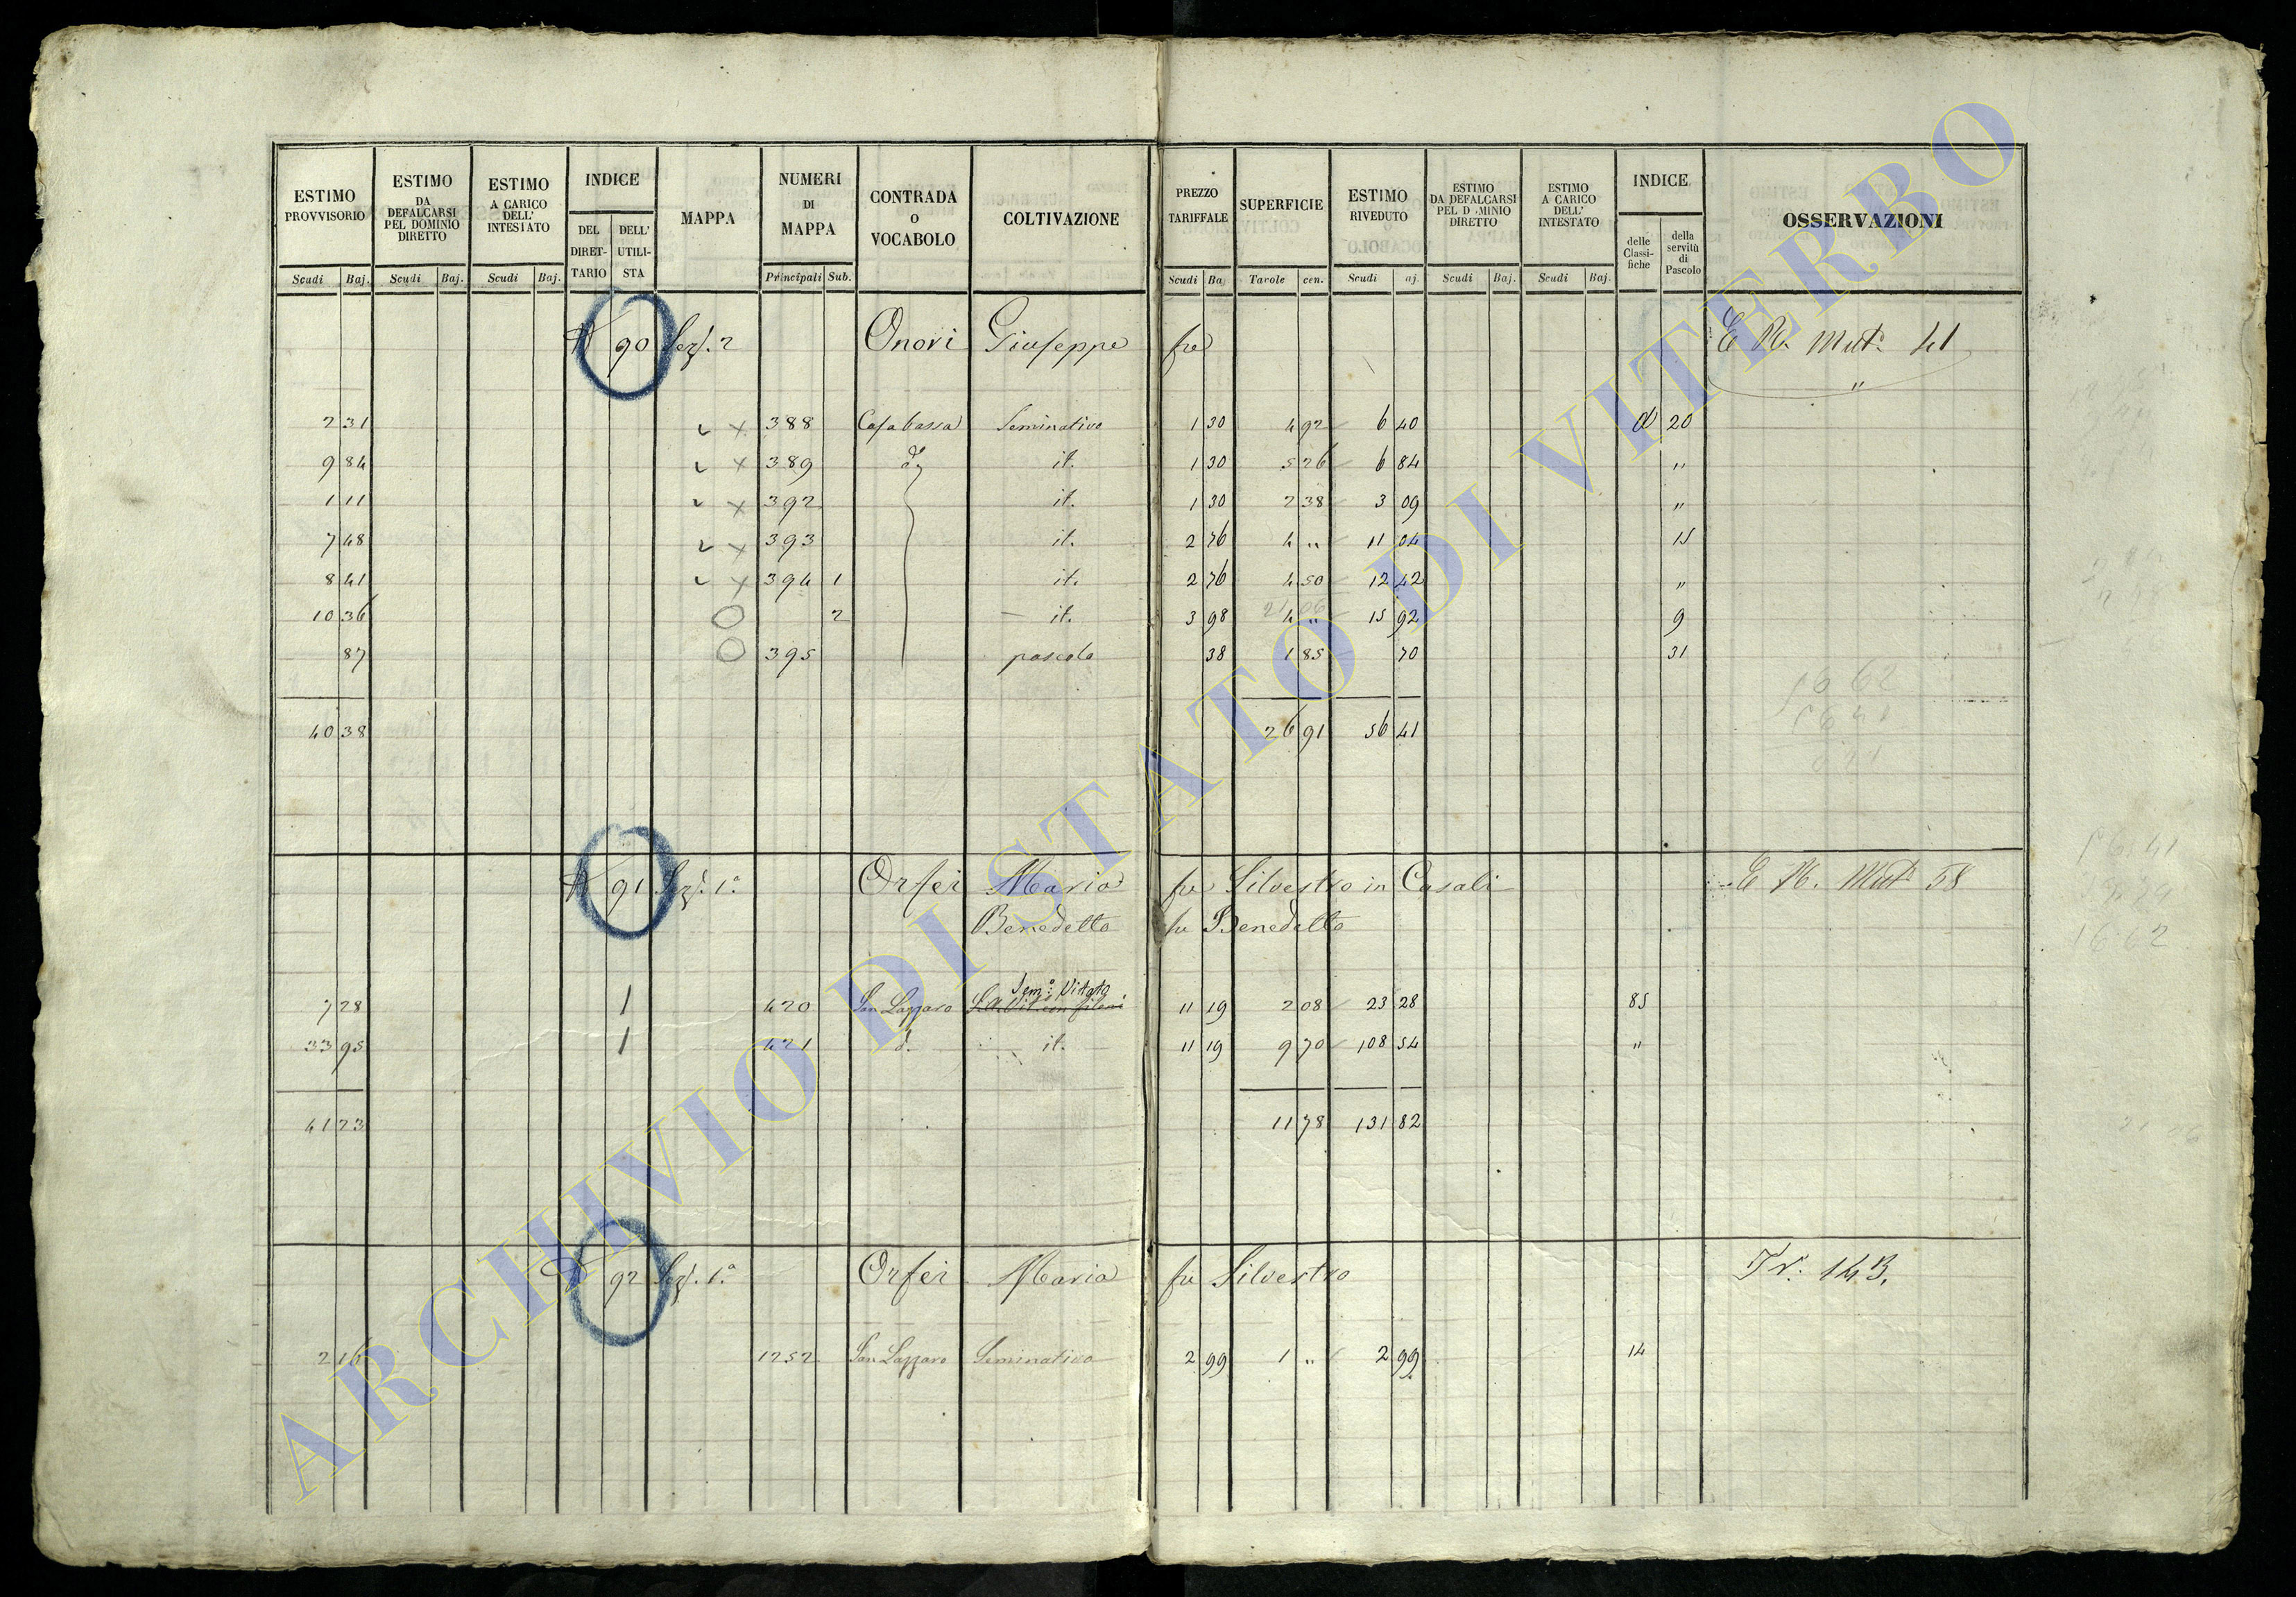 ESTIMO PROVVISORIO Scudi Baj.
ESTIMO DA DEFALCARSI PEL DOMINIO DIRETTO Scudi Baj.
ESTIMO A CARICO DELL' INTESTATO Scudi Baj.
INDICE DEL DIRETTARIO DELL' UTILISTA
MAPPA
NUMERI DI MAPPA Principali Sub.
CONTRADA O VOCABOLO
COLTIVAZIONE
PREZZO TARIFFALE Scudi Ba
SUPERFICIE Tavole cen.
ESTIMO RIVEDUTO Scudi aj.
ESTIMO DA DEFALCARSI PEL D MINIO DIRETTO Scudi Baj.
ESTIMO A CARICO DELL' INTESTATO Scudi Baj.
INDICE delle Classifiche della servitù di Pascolo
OSSERVAZIONI
90 Sez. 2 Onori Giuseppe fu E N. Mut. 41
"
2 31 x 388 Casabassa Seminativo 1 30 4 92 6 40 d 20
9 84 x 389 d it. 1 30 5 26 6 84 "
1 11 x 392 it. 1 30 2 38 3 09 "
7 48 x 393 it. 2 76 4 " 11 04 15
8 41 x 394 1 it. 2 76 4 50 12 42 "
10 36 2 it. 3 98 4 " 15 92 9
87 395 pascolo 38 1 85 70 31
40 38 26 91 56 41
91 Sez. 1.a Orfei Maria fu Silvestro in Casali E N. Mut. 58
Benedetto fu Benedetto
Sem.o Vitato
7 28 1 420 San Lazzaro 11 19 2 08 23 28 85
33 95 1 421 d. it. 11 19 9 70 108 54 "
41 23 11 78 131 82
92 Sez. 1.a Orfei Maria fu Silvestro Tr. 143.
2 16 1252 San Lazzaro Seminativo 2 99 1 " 2 99 14
ARCHIVIO DI STATO DI VITERBO